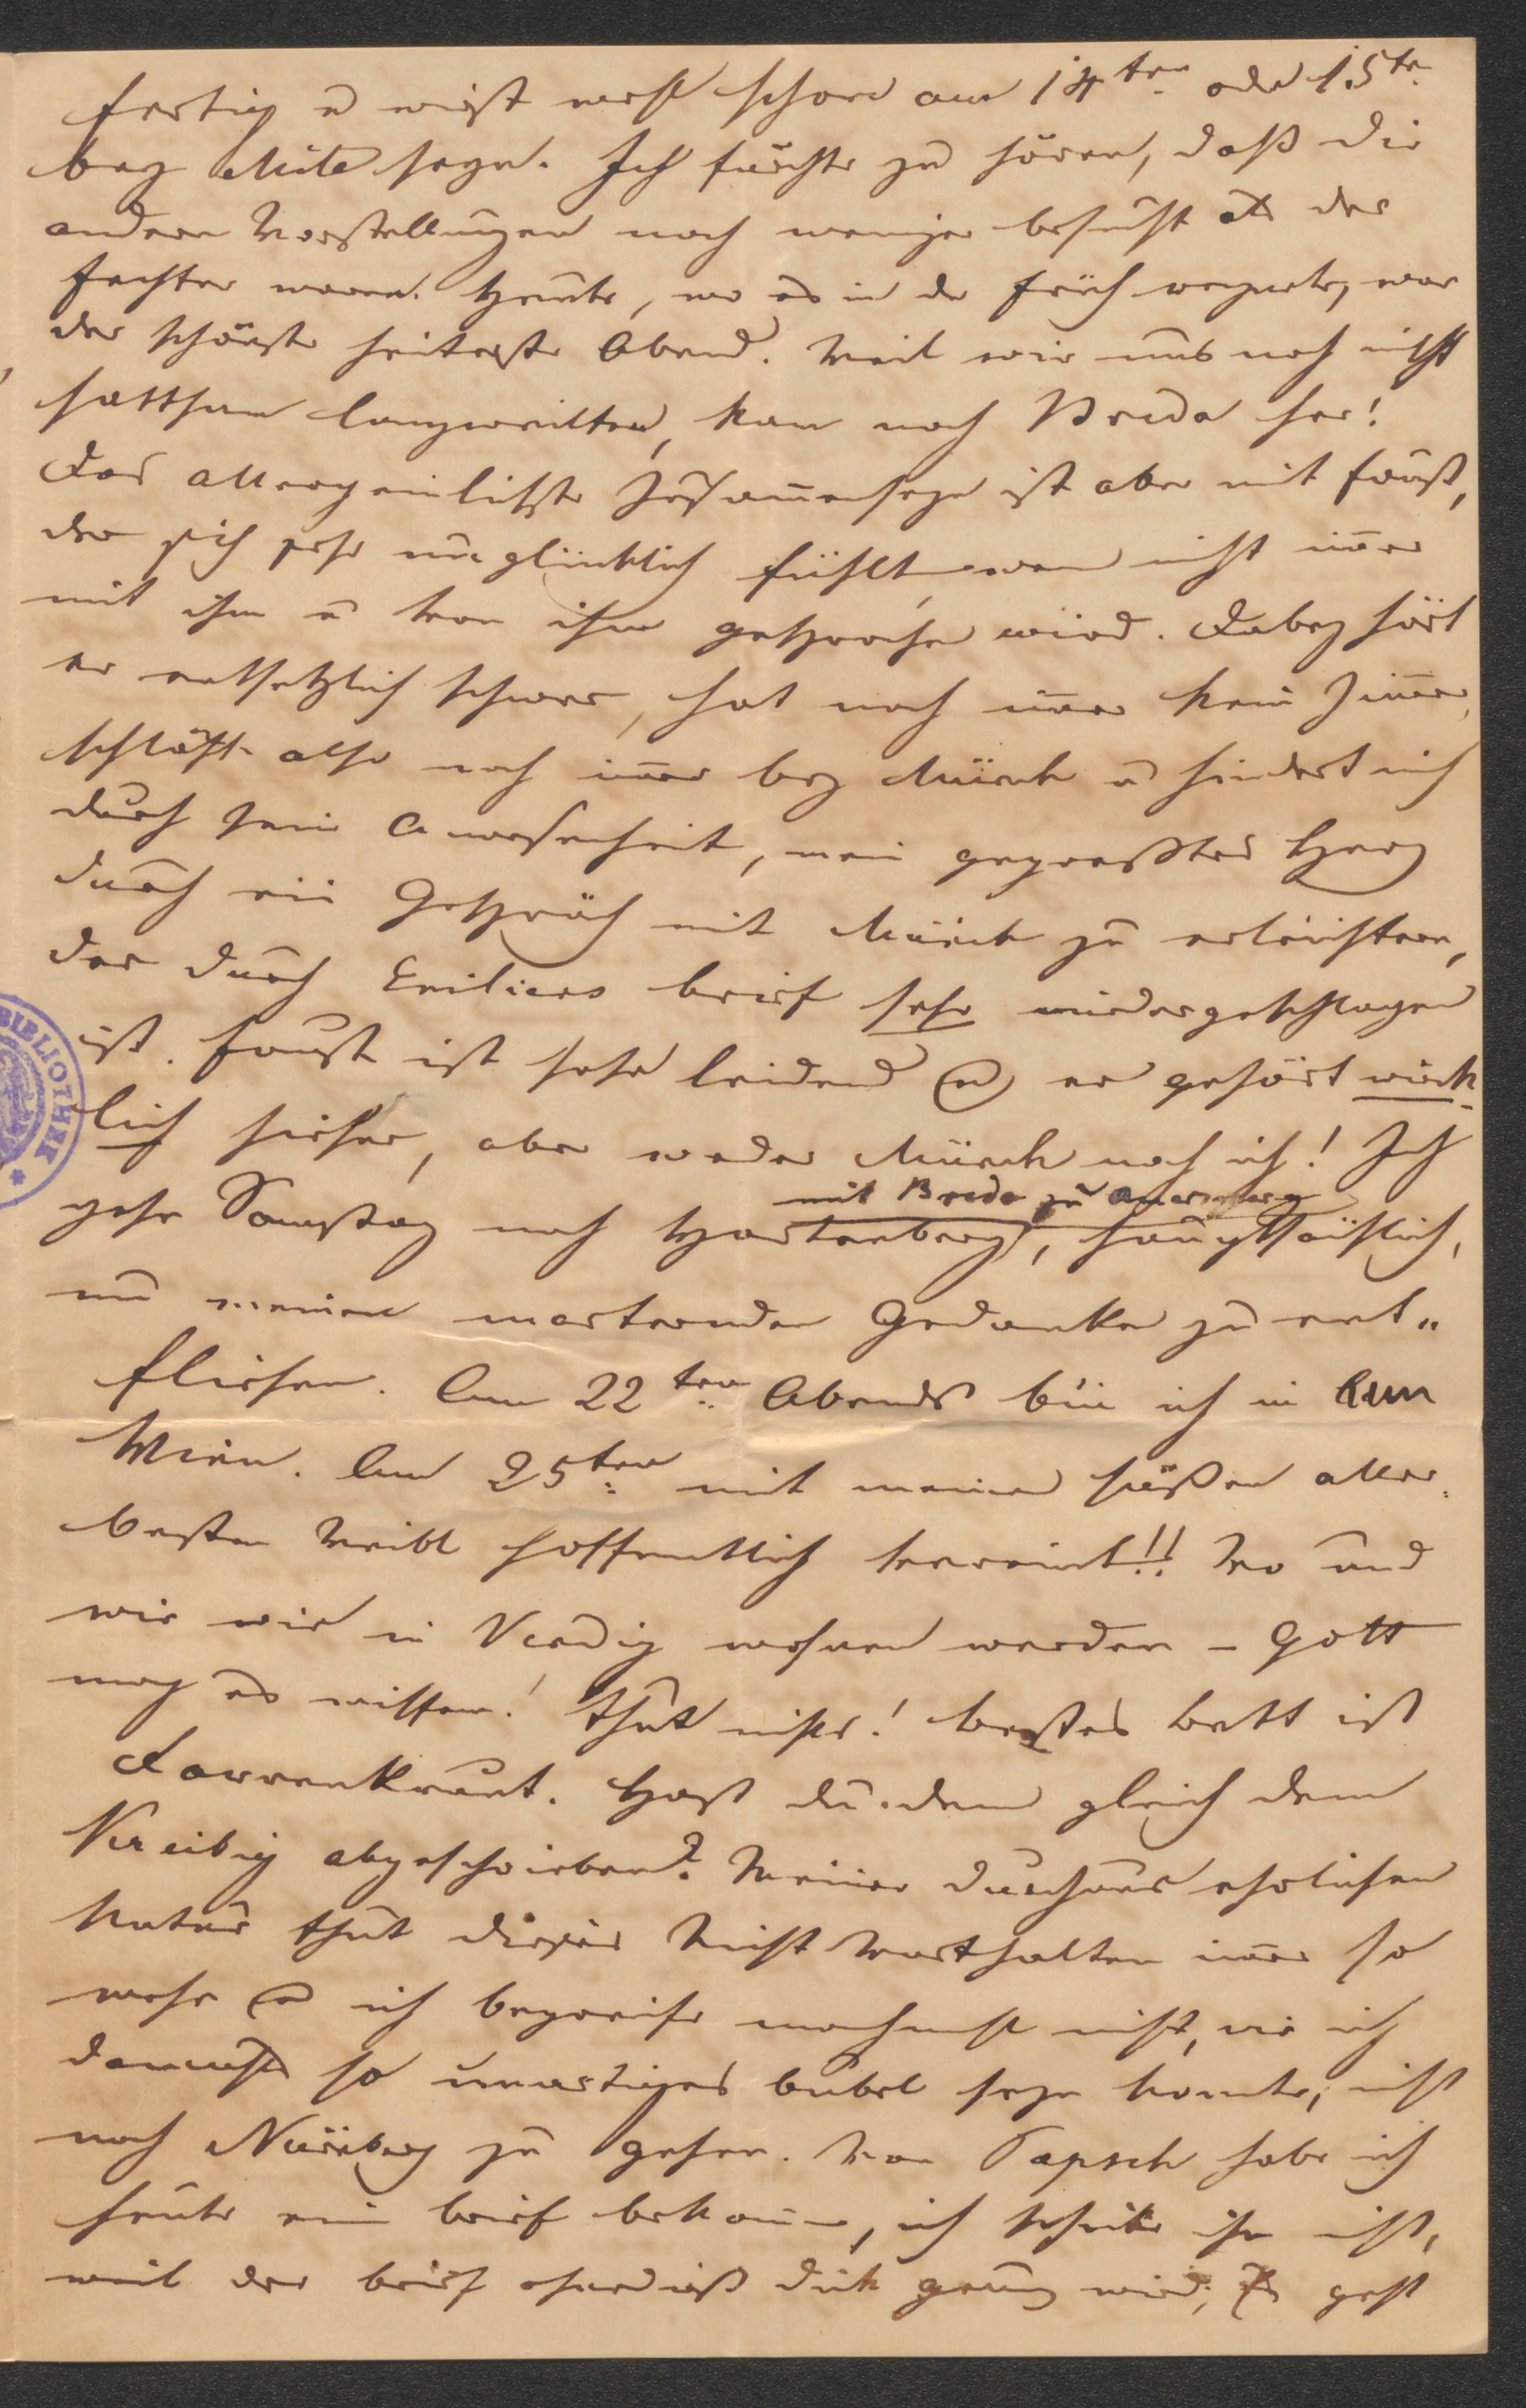 fertig u wirst wohl schon am 14ten oder 15te
bey Mila seyn. Ich fürchte zu hören, daß die
andern Vorstellungen noch weniger besucht als der
Fechter waren. Heute, wo es in der Früh regnete, war
der schönste heiterste Abend. Weil wir uns noch nicht
sattsam langweilten, kam noch Breda her!
Das allerpeinlichste Zusammenseyn ist aber mit Faust,
der sich sehr unglücklich fühlt, wenn nicht imer
mit ihm u von ihm gesprochen wird. Dabey hört
er entsetzlich schwer, hat noch imer kein Zimer,
schläft also noch imer bey Münch u hindert mich
durch seine Anwesenheit, mein gepreßtes Herz
durch ein Gespräch mit Münch zu erleichtern,
der durch Emiliens Brief sehr niedergeschlagen
ist. Faust ist sehr leidend u er gehört wirk-
lich hieher, aber weder Münch noch ich! Ich
mit Breda zu Auersperg
gehe Samstag nach Hartenberg, hauptsächlich,
um meinen marternden Gedanken zu ent-
fliehen. Am 22ten Abends bin ich in
Wien. Am 25ten mit meinem süßen aller-
besten Weibl hoffentlich vereint!! Wo und
wie wir in Venedig wohnen werden – Gott
mag es wissen! Thut nichts! bestes Bett ist
Farrenkraut. Hast du denn gleich dem
Kreibig abgeschrieben? Meiner durchaus ehrlichen
Natur thut dieses Nicht Worthalten imer so
wehe u ich begreife nicht, wie ich
damals so unartiges Bubel seyn konnte, nicht
nach Nürnberg zu gehen. Von Papsch habe ich
heute ein Brief bekomen, ich schicke ihn nicht,
weil der Brief ohnedieß dick genug wird; Es geht